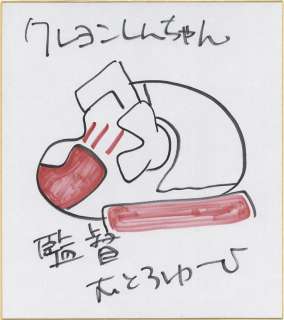 クレヨンしんちゃん
監督
むとうゆーじ